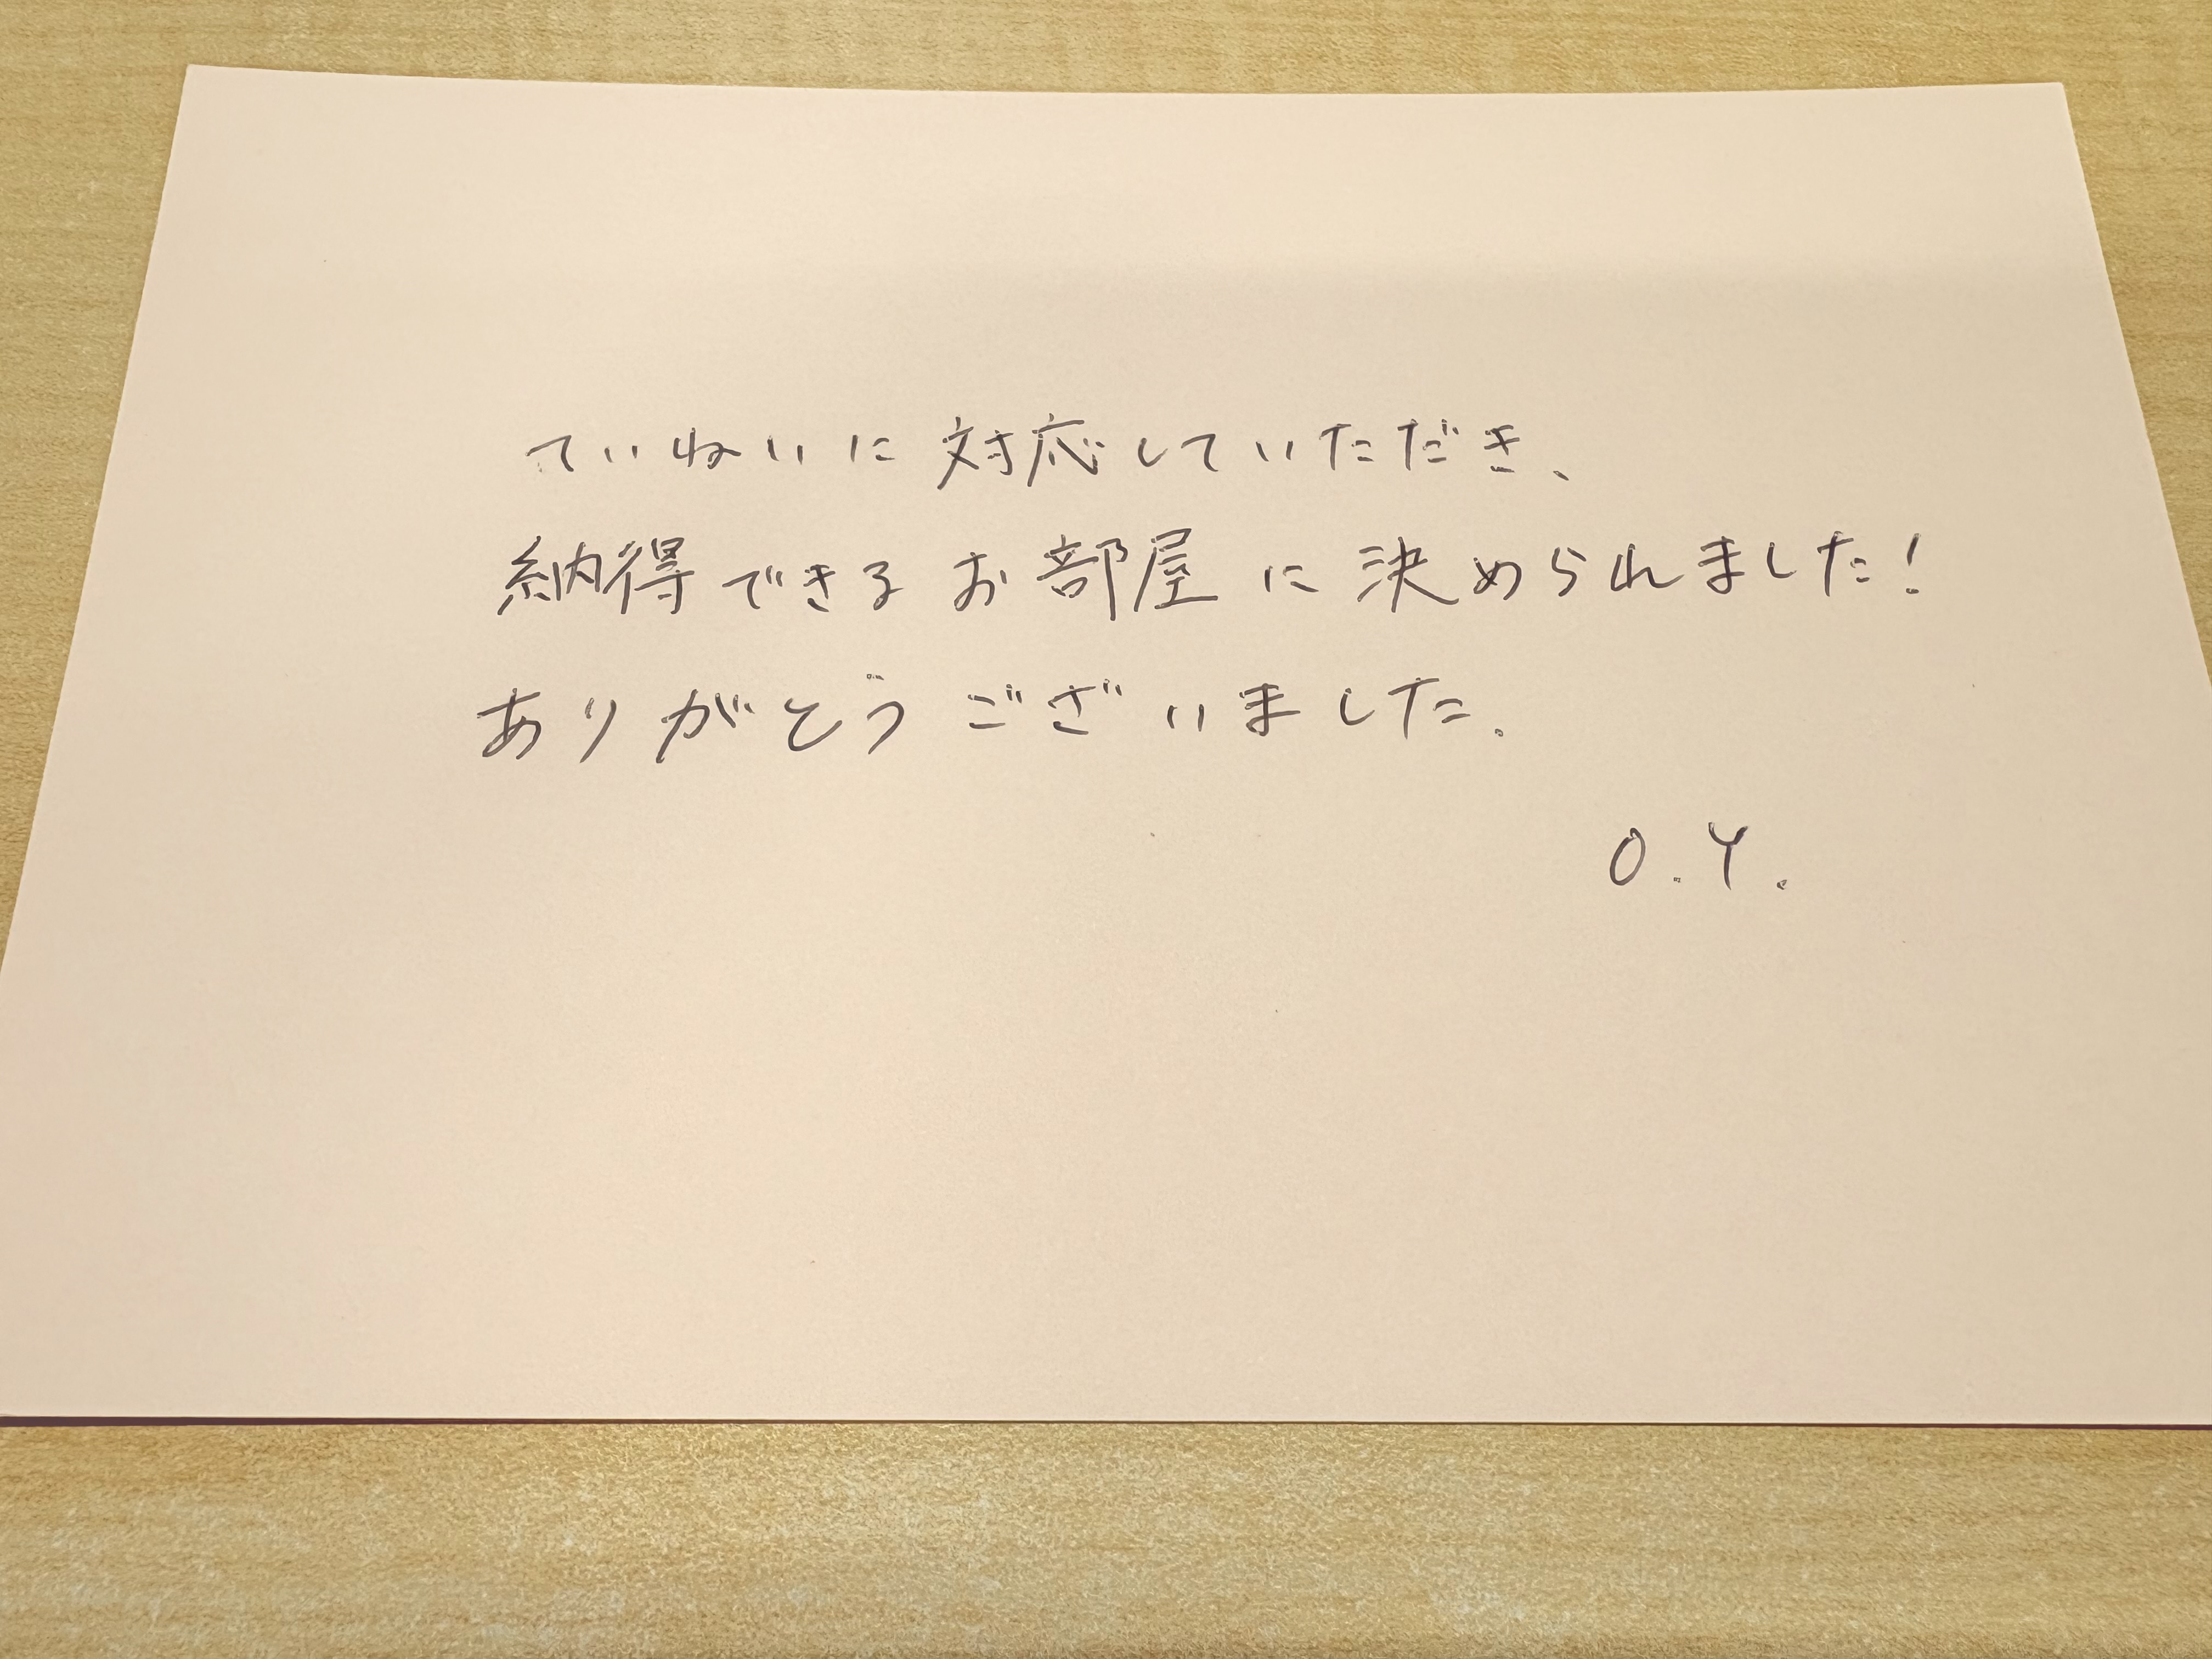 ていねいに対応していただき、
納得できるお部屋に決められました!
ありがとうございました.
O.Y.